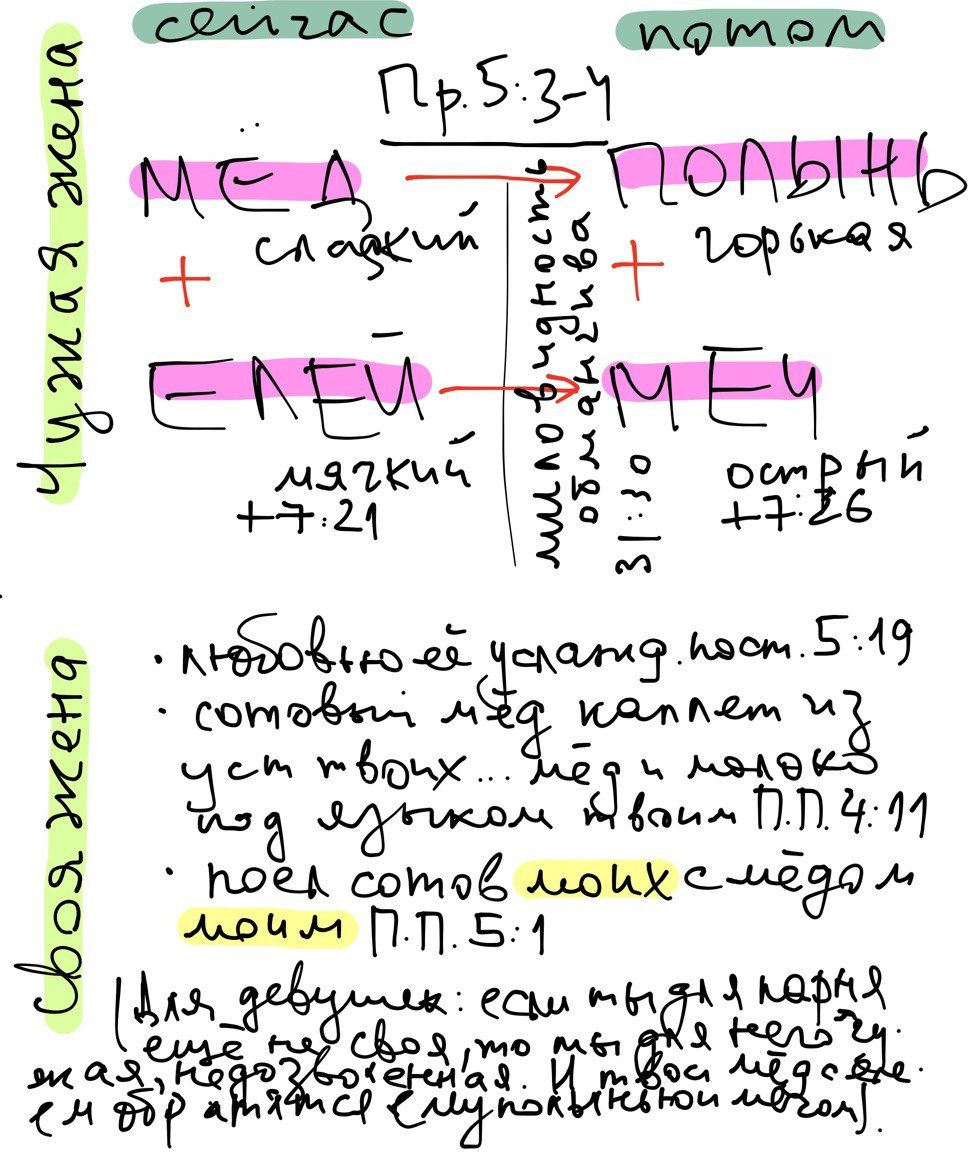 сейчас
потом
Чужая жена
Пр. 5:3-4
МЁД
ПОЛЫНЬ
сладкий
горькая
+
+
миловидность
обманчива
31:30
ЕЛЕЙ
МЕЧ
мягкий
острый
+7:21
+7:26
Своя жена
· любовью её услажд. пост. 5:19
· сотовый мёд каплет из
уст твоих... мёд и молоко
под языком твоим П.П. 4:11
· поел сотов моих с мёдом
моим П.П. 5:1
(Для девушек: если ты для парня
ещё не своя, то ты для него чу-
жая, недозволенная. И твои мёд с еле-
ем обратятся ему полынью и мечом).